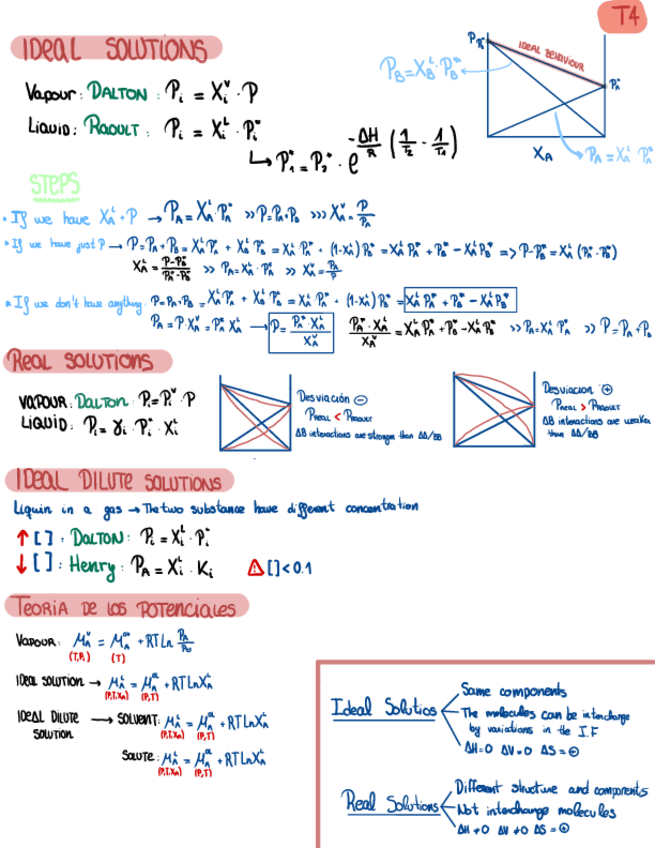 T4
IDEAL SOLUTIONS
Vapour: DALTON: Pᵢ = Xᵢᵛ · P
Liquid: RAOULT: Pᵢ = Xᵢᴸ · Pᵢ*
↳ P₁* = P₂* · e^(-ΔH/R (1/T₂ - 1/T₁))
P_B*
IDEAL BEHAVIOUR
P_B = X_Bᴸ · P_B*
P_A*
X_A
P_A = X_Aᴸ P_A*
STEPS
• If we have X_Aᴸ + P → P_A = X_Aᴸ P_A* >> P = P_A + P_B >>> X_Aᵛ = P/P_A
• If we have just P → P = P_A + P_B = X_Aᴸ P_A* + X_Bᴸ P_B* = X_Aᴸ P_A* + (1-X_Aᴸ) P_B* = X_Aᴸ P_A* + P_B* - X_Aᴸ P_B* => P - P_B* = X_Aᴸ (P_A* - P_B*)
X_Aᴸ = (P - P_B*)/(P_A* - P_B*) >> P_A = X_Aᴸ · P_A* >> X_Aᵛ = P_A/P
• If we don't have anything: P = P_A + P_B = X_Aᴸ P_A* + X_Bᴸ P_B* = X_Aᴸ P_A* + (1-X_Aᴸ) P_B* = X_Aᴸ P_A* + P_B* - X_Aᴸ P_B*
P_A = P · X_Aᵛ = P_A* X_Aᴸ → P = (P_A* X_Aᴸ)/X_Aᵛ (P_A* · X_Aᴸ)/X_Aᵛ = X_Aᴸ P_A* + P_B* - X_Aᴸ P_B* >> P_A = X_Aᴸ P_A* >> P = P_A + P_B
REAL SOLUTIONS
VAPOUR: DALTON: Pᵢ = Pᵢᵛ · P
LIQUID: Pᵢ = γᵢ · Pᵢ* · Xᵢᴸ
Desviación ⊖
P_REAL < P_RAOULT
AB interactions are stronger than AA/BB
Desviacion ⊕
P_REAL > P_RAOULT
AB interactions are weaker
than AA/BB
IDEAL DILUTE SOLUTIONS
Liquin in a gas → The two substance have different concentration
↑ [ ] : DALTON: Pᵢ = Xᵢᴸ · Pᵢ*
↓ [ ] : Henry: P_A = Xᵢᴸ · Kᵢ ⚠ [ ] < 0.1
TEORIA DE LOS POTENCIALES
VAPOUR: μ_Aᵛ = μ_A + RT Ln P_A/P₀
(T,Pᵢ) (T)
IDEAL SOLUTION → μ_Aᴸ = μ_A + RT Ln X_Aᴸ
(P,T,X_A) (P,T)
IDEAL DILUTE SOLUTION → SOLVENT: μ_Aᴸ = μ_A + RT Ln X_Aᴸ
(P,T,X_A) (P,T)
SOLUTE: μ_Aᴸ = μ_A + RT Ln X_Aᴸ
(P,T,X_A) (P,T)
Ideal Solutios
Same components
The molecules can be interchange
by variations in the I.F
ΔH=0 ΔV=0 ΔS=⊖
Real Solutions
Different structure and components
Not interchange molecules
ΔH≠0 ΔV≠0 ΔS=⊕